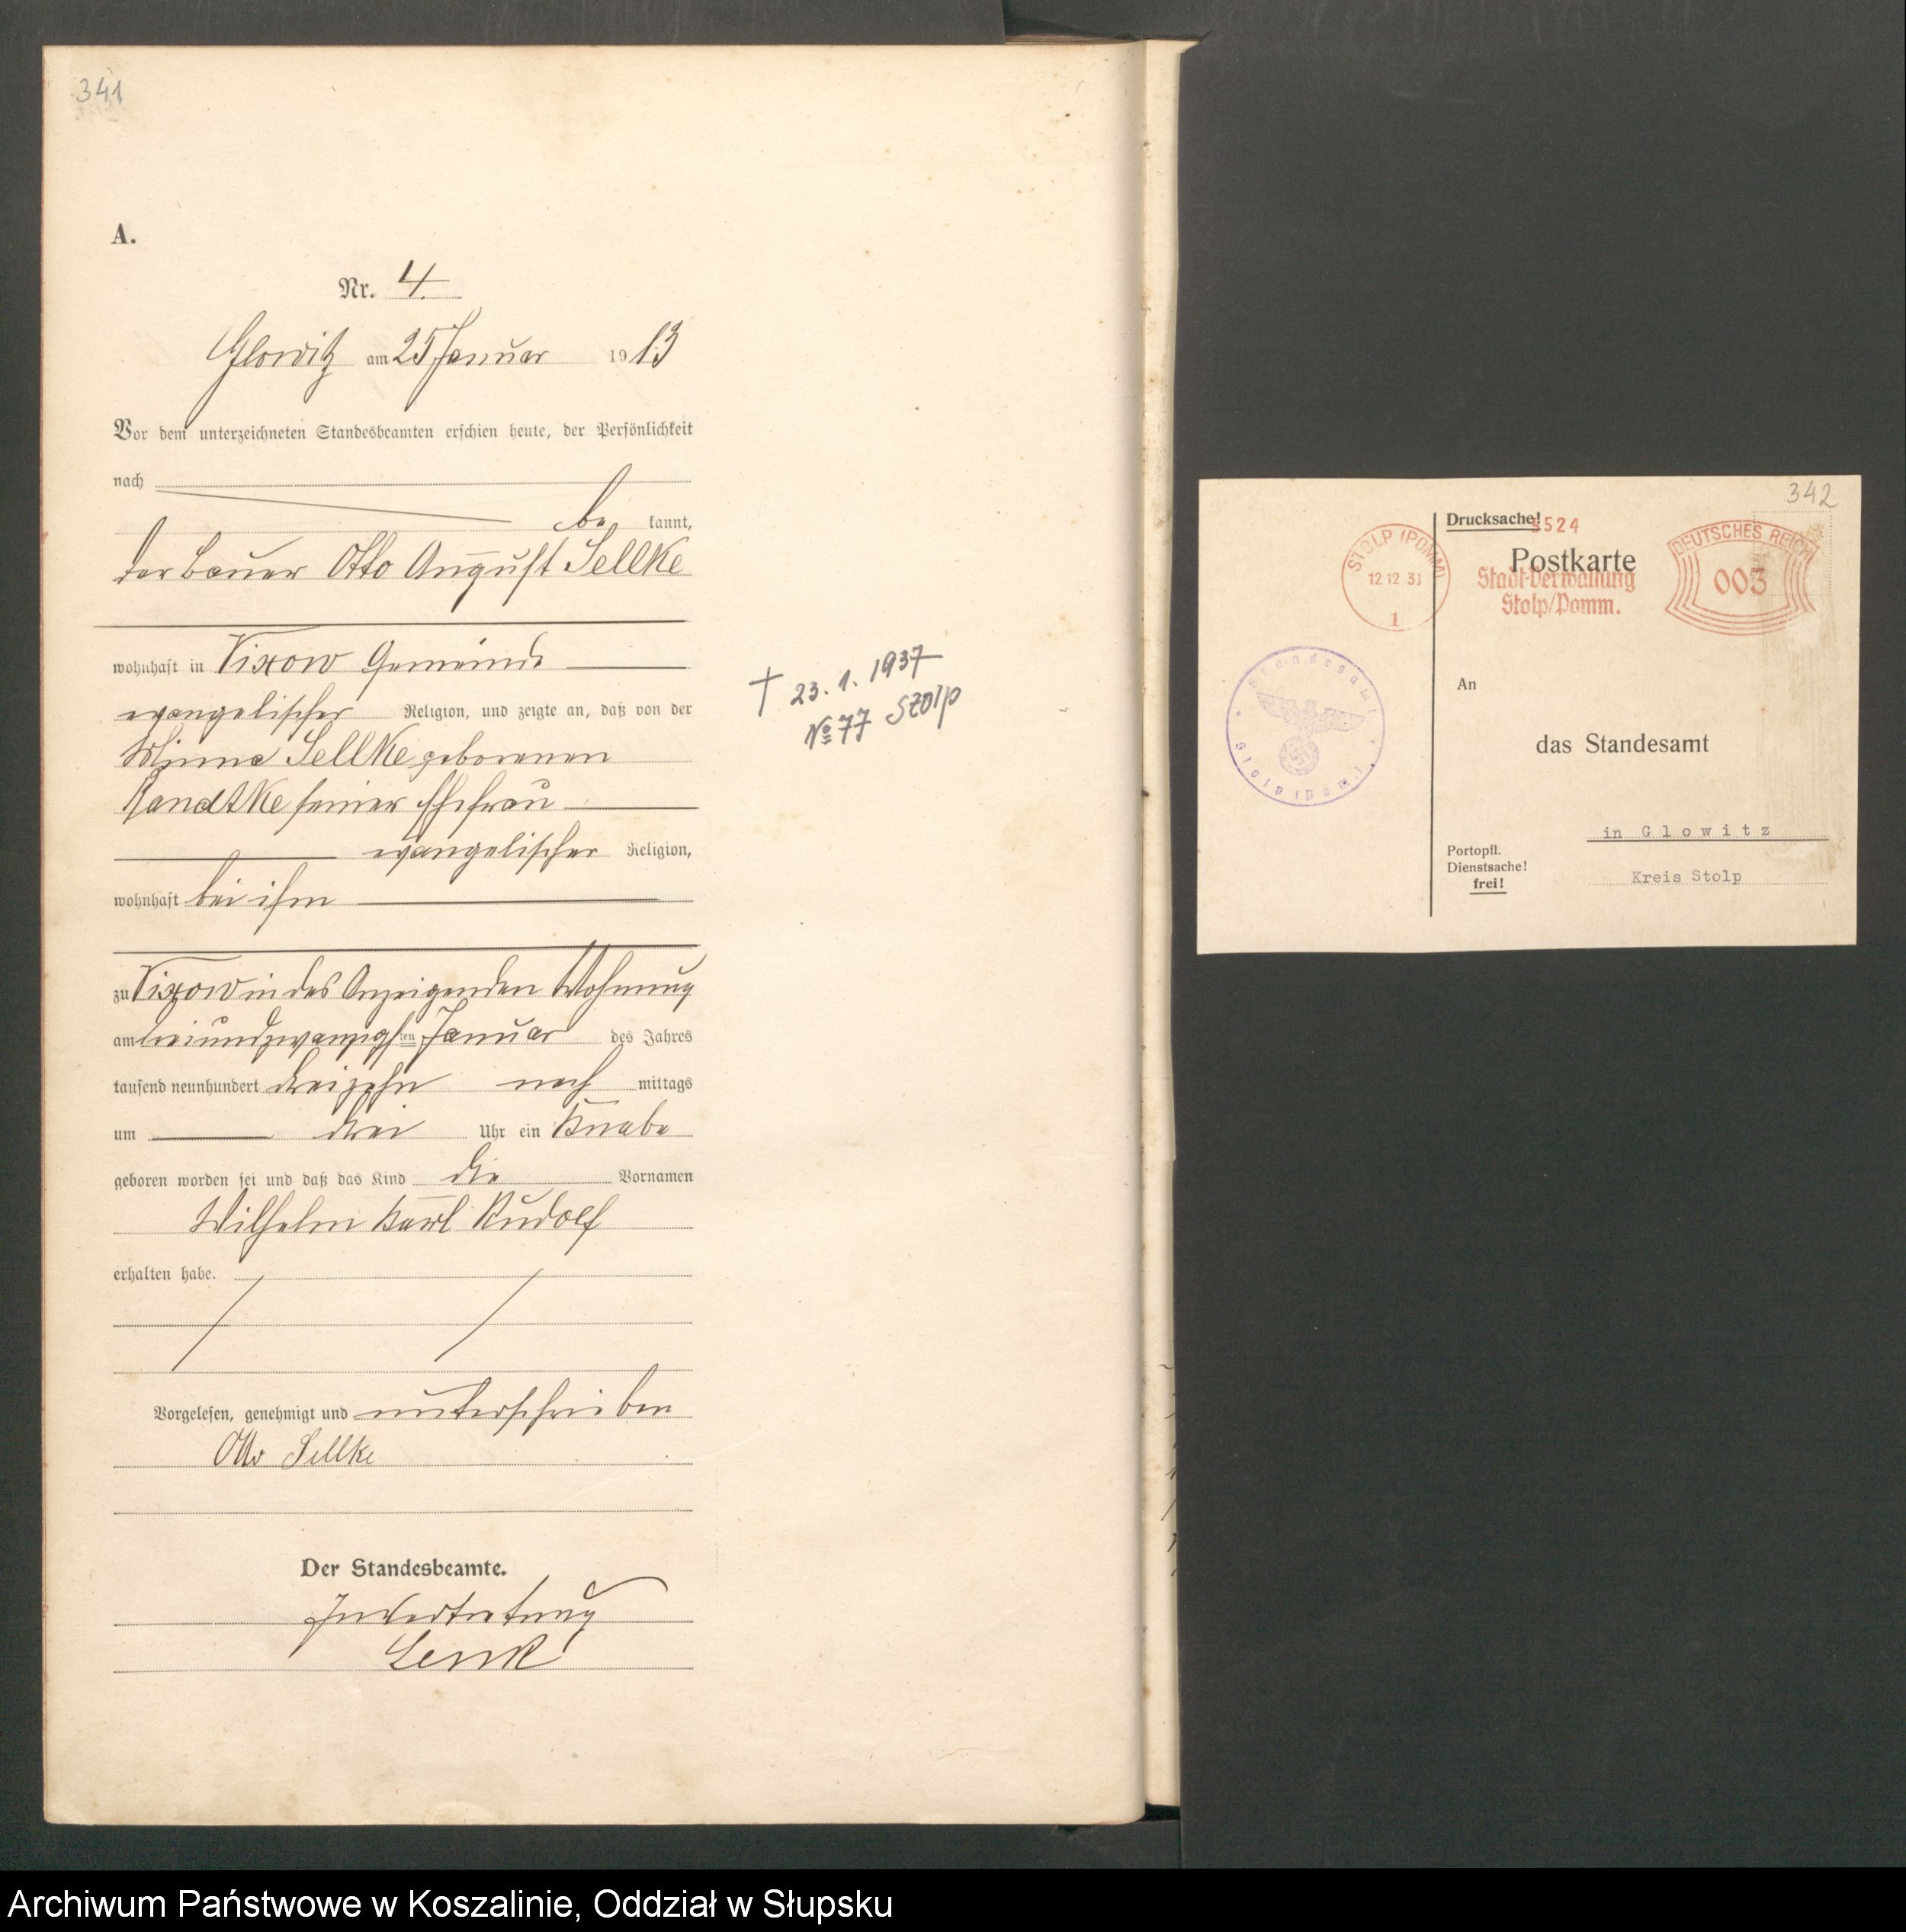 341
A.
Nr. 4.
Glowitz am 25 Januar 1913
Vor dem unterzeichneten Standesbeamten erschien heute, der Persönlichkeit
nach
be kannt,
der Bauer Otto August Sellke
wohnhaft in Vixow Gemeinde
evangelischer Religion, und zeigte an, daß von der
Minna Sellke geborenen
Randtke seiner Ehefrau
evangelischer Religion,
wohnhaft bei ihm
zu Vixow in des Anzeigenden Wohnung
am dreiundzwanzigsten Januar des Jahres
tausend neunhundert dreizehn nach mittags
um drei Uhr ein Knabe
geboren worden sei und daß das Kind die Vornamen
Wilhelm Karl Rudolf
erhalten habe.
Vorgelesen, genehmigt und unterschrieben
Otto Sellke
Der Standesbeamte.
In Vertretung
Lenk
† 23. 1. 1937
№ 77 Stolp
342
Drucksache!
5524
Postkarte
STOLP (POMM)
12 12 3
1
Stadt-Verwaltung
Stolp/Pomm.
DEUTSCHES REICH
003
Standesamt
Stolp (Pom.)
An
das Standesamt
in Glowitz
Portopfl.
Dienstsache!
frei!
Kreis Stolp
Archiwum Państwowe w Koszalinie, Oddział w Słupsku